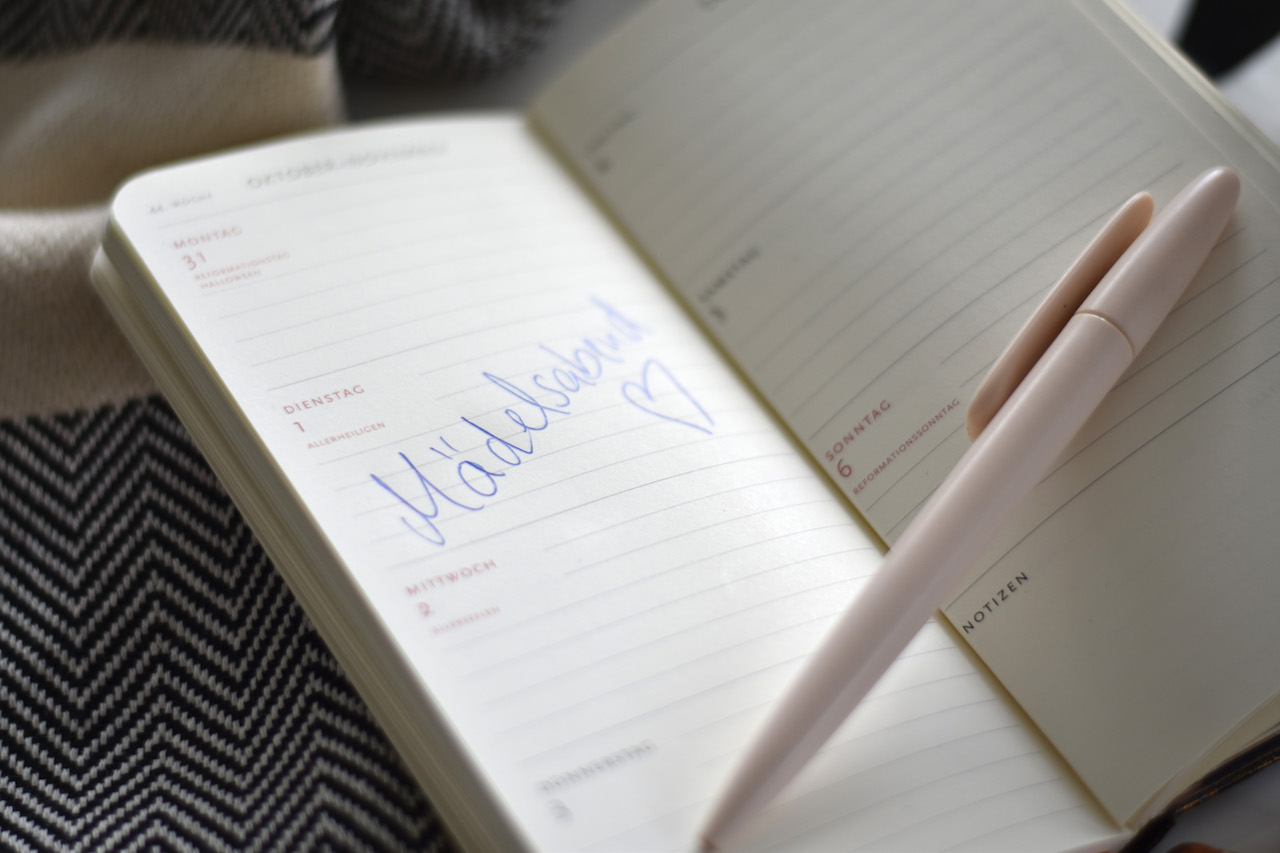 44. WOCHE
OKTOBER/NOVEMBER
MONTAG
31
REFORMATIONSTAG
HALLOWEEN
DIENSTAG
1
ALLERHEILIGEN
Mädelsabend
MITTWOCH
2
ALLERSEELEN
DONNERSTAG
3
SAMSTAG
5
SONNTAG
6
REFORMATIONSSONNTAG
NOTIZEN